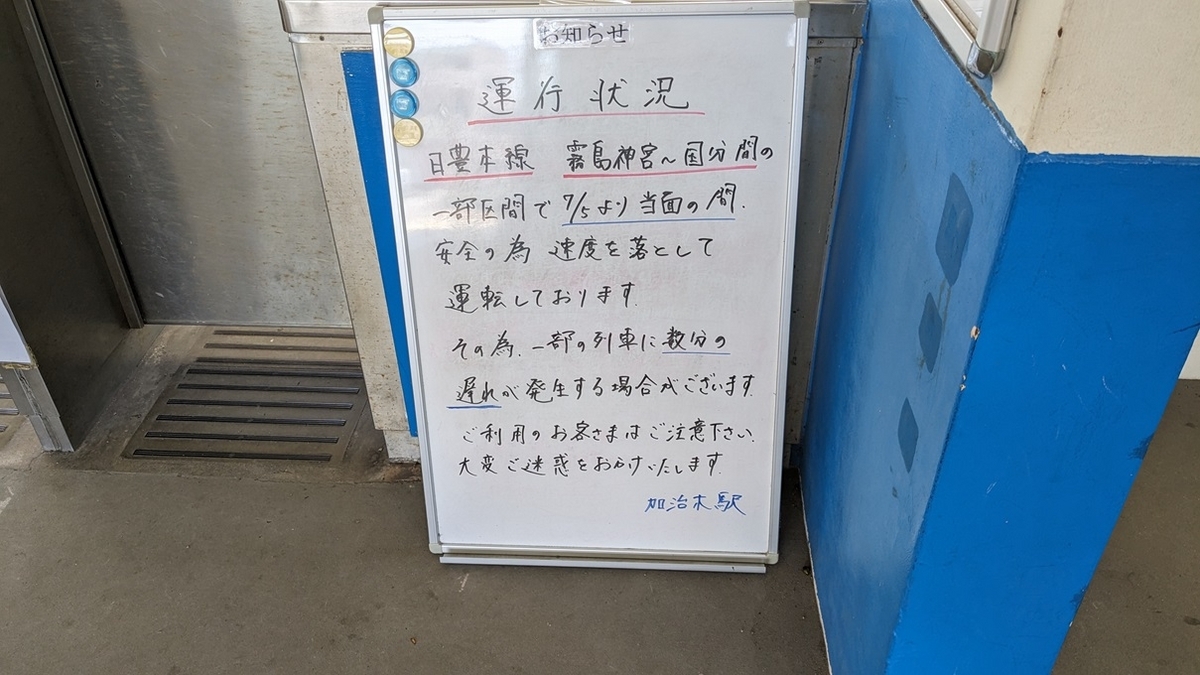 お知らせ
運行状況
日豊本線 霧島神宮〜国分間の
一部区間で7/5より当面の間.
安全の為 速度を落として
運転しております.
その為.一部の列車に数分の
遅れが発生する場合がございます.
ご利用のお客さまはご注意下さい.
大変ご迷惑をおかけいたします.
加治木駅